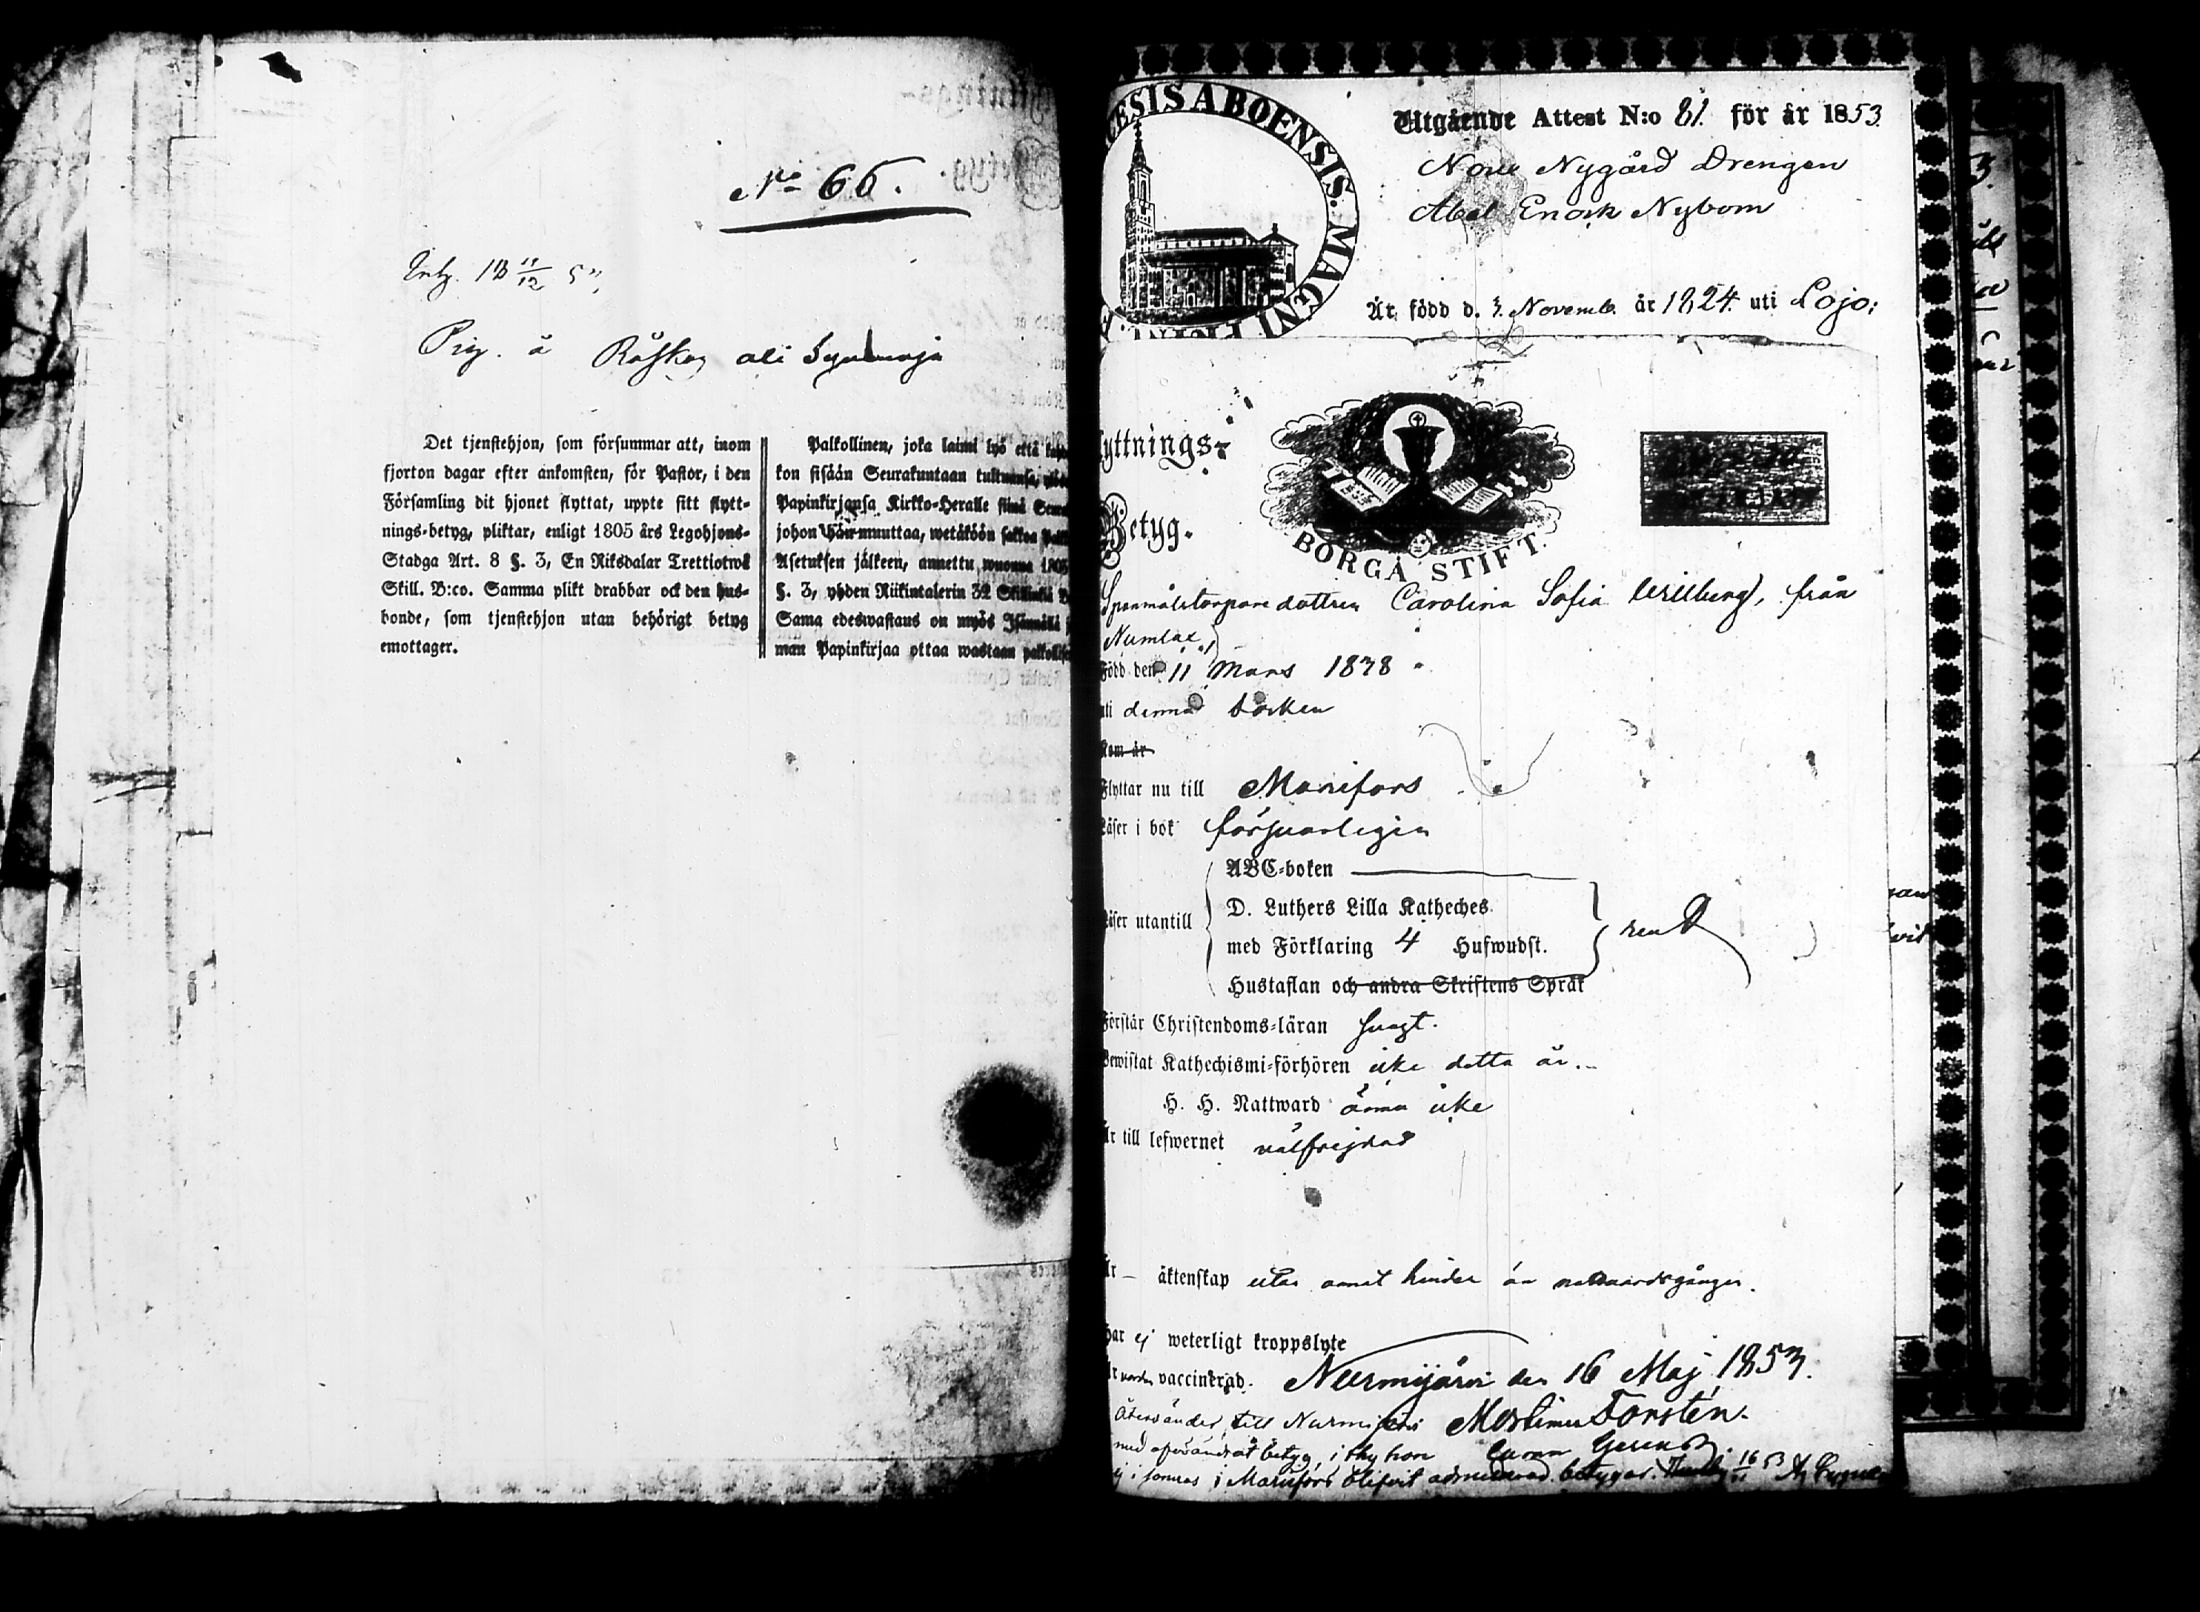 No 66.
Prig. å Råskog ali
Det tjenstehjon, som försummar att, inom
fjorton dagar efter ankomsten, för Pastor, i den
Församling dit hjonet flyttat, uppte sitt flytt-
nings-betyg, pliktar, enligt 1805 års Legohjons-
Stadga Art. 8 §. 3, En Riksdalar Trettiotwå
Skill. B:co. Samma plikt drabbar ock den hus-
bonde, som tjenstehjon utan behörigt betyg
emottager.
Palkollinen, joka laimi lyö että
kon sisään Seurakuntaan tultuansa,
Papinkirjansa Kirkko-Heralle siinä
johon hän muuttaa, wetäköön sakkoa
Asetuksen jälkeen, annettu wuonna 1805
§. 3, yhden Riikintalerin 32 Skillinkiä
Sama edeswastaus on myös Isännällä
man Papinkirjaa ottaa wastaan
CESIS ABOENSIS. MAGNI
Utgående Attest N:o 81. för år 1853.
Nygård Drengen
Abel Enock Nybom
Är född d. 3. Novemb. år 1824. uti Lojo;
yttnings-
Betyg.
BORGÅ STIFT.
Spanmålstorpare dottren Carolina Sofia Willberg, från
Numlax,
Född den 11 Mars 1838
uti denna socken
Kom år
Flyttar nu till Mariefors
Läser i bok försvarligen
ABC-boken
Läser utantill D. Luthers Lilla Katheches
med Förklaring 4 Hufwudst.
Hustaflan och andra Skriftens Språk
rent
Förstår Christendoms-läran svagt.
Bewistat Kathechismi-förhören icke detta år.
H. H. Nattward ännu icke
Är till lefwernet välfrejdad
Är – äktenskap utan annat hinder än nattvardsgången.
Har ej weterligt kroppslyte
Är vaccinerad. Nurmijärvi den 16 Maj 1853.
Återvänder till Nurmijärvi Mortimer Forstén.
med oförändrat betyg, i thy hon
i Mariefors blifvit admitterad. betygar. 16/11 53